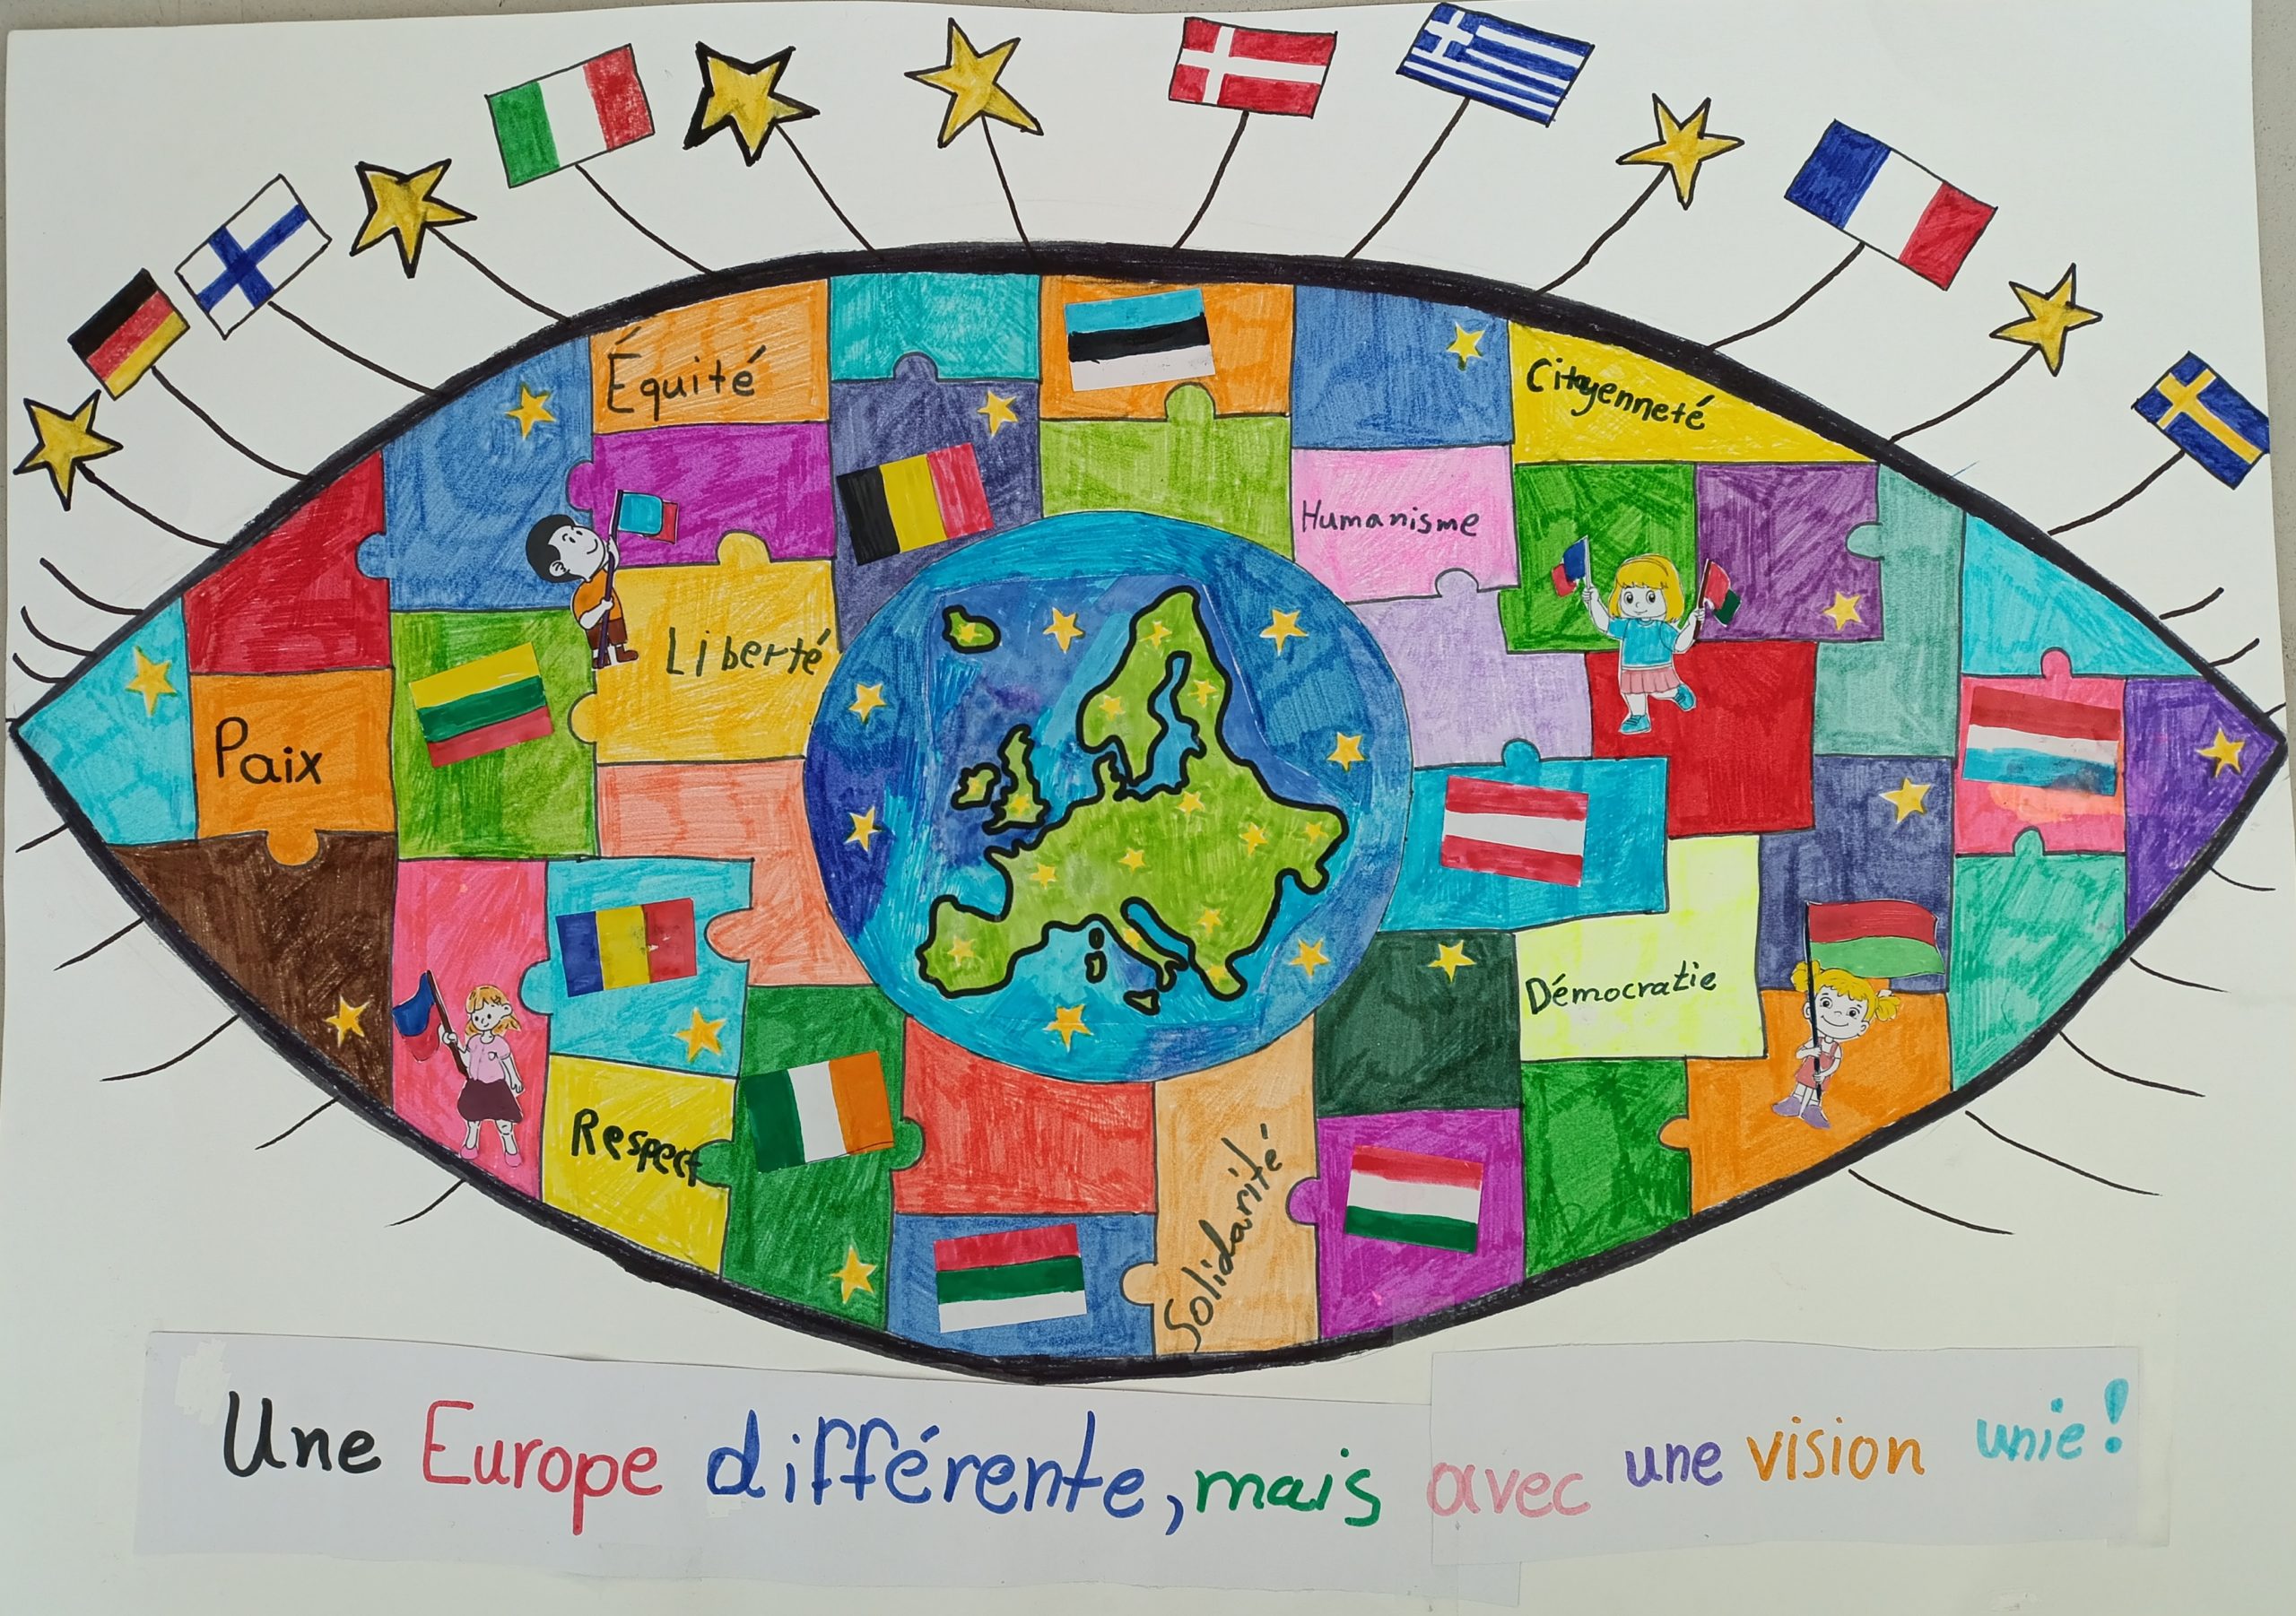 Équité
Citoyenneté
Humanisme
Liberté
Paix
Démocratie
Respect
Solidarité
Une Europe différente, mais avec une vision unie!